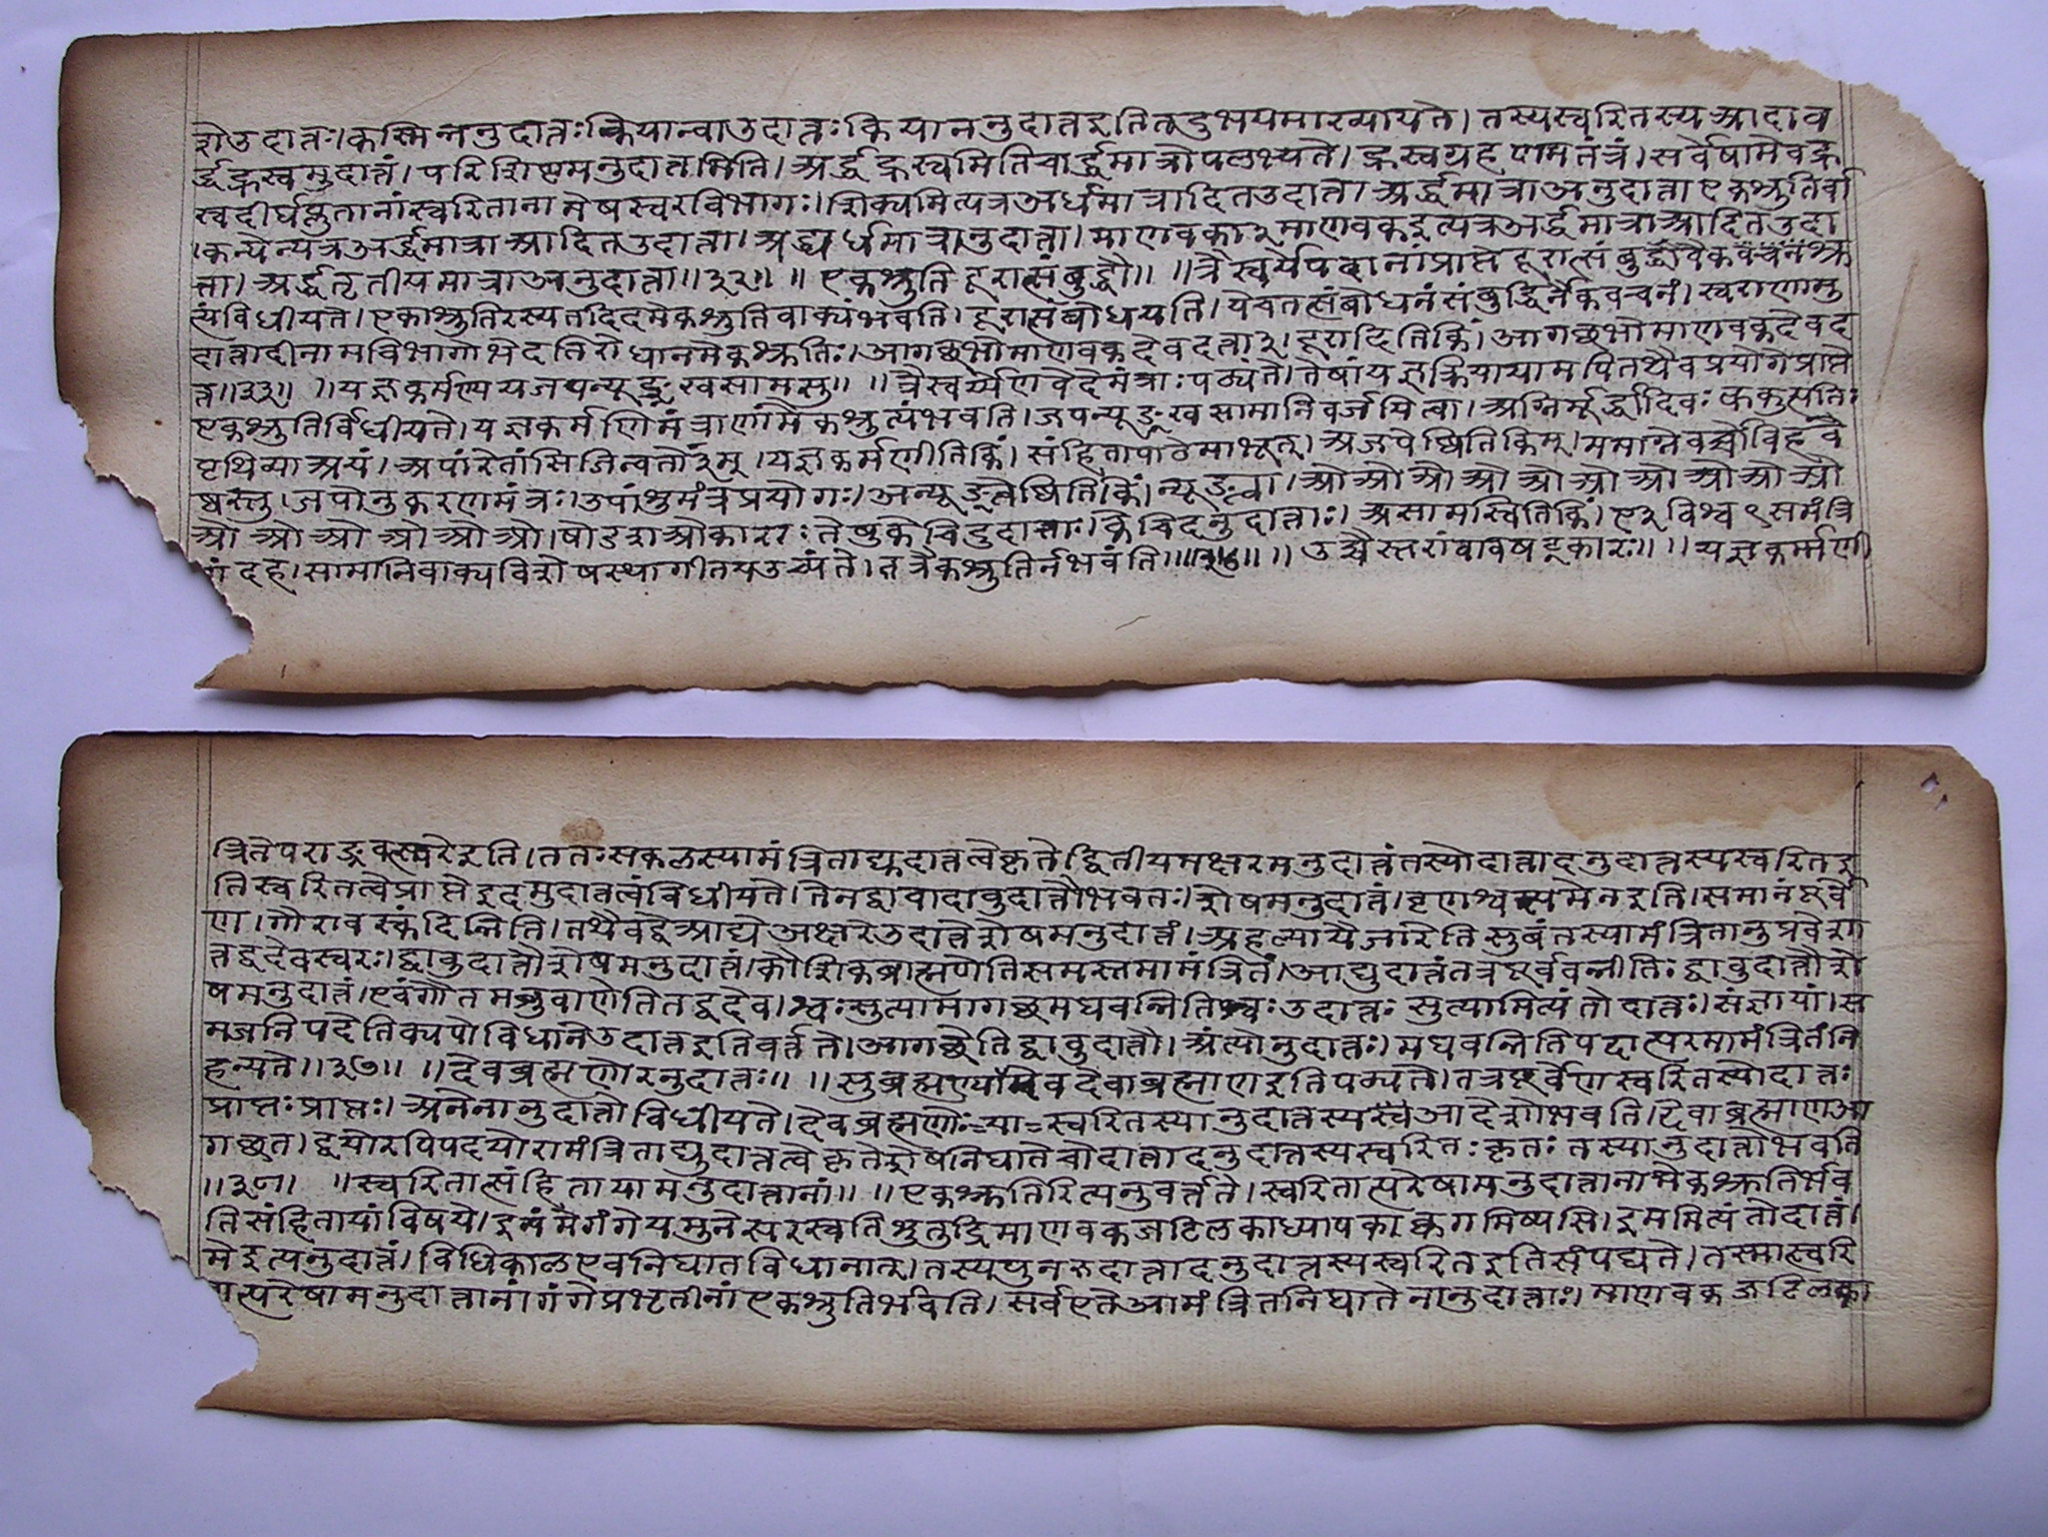 शे उदात्तः। कस्मिन्ननुदात्तः कियान्वा उदात्तः कियाननुदात्त इति तदुभयमाख्यायते। तस्य स्वरितस्य आदाव
र्द्धह्रस्वमुदात्तं। परिशिष्टमनुदात्तमिति। अर्द्धह्रस्वमिति चार्द्धमात्रोपलक्ष्यते। ह्रस्वग्रहणमतंत्रं। सर्वेषामेव ह्र
स्वदीर्घप्लुतानां स्वरितानामेष स्वरविभागः। शिक्यमित्यत्र अर्धमात्रादित उदात्ता। अर्द्धमात्रा अनुदात्ता एकश्रुतिर्वा
। कन्येत्यत्र अर्द्धमात्रा आदित उदात्ता। अद्ध्यर्धमात्रानुदात्ता। माणवका३ माणवक इत्यत्र अर्द्धमात्रा आदित उदा
त्ता। अर्द्धतृतीयमात्रा अनुदात्ता॥३२॥ ॥ एकश्रुति दूरात्संबुद्धौ॥ ॥ त्रैस्वर्ये पदानां प्राप्ते दूरात्संबुद्धावैक
त्यं विधीयते। एका श्रुतिरस्य तदिदमेकश्रुति वाक्यं भवति। दूरात्संबोधयति। येन तत्संबोधनं संबुद्धिर्नैकवचनं। स्वराणामु
दात्तादीनामविभागो भेदतिरोधानमेकश्रुतिः। आगच्छ भो माणवक देवदत्ता३। दूरादिति किं। आगच्छ भो माणवक देवद
त्त॥३३॥ ॥ यज्ञकर्मण्यजपन्यूङ्खसामसु॥ ॥ त्रैस्वर्य्येण वेदे मंत्राः पठ्यंते। तेषां यज्ञक्रियायामपि तथैव प्रयोगे प्राप्ते
एकश्रुतिर्विधीयते। यज्ञकर्मणि मंत्राणामैकश्रुत्यं भवति। जपन्यूङ्खसामानि वर्जयित्वा। अग्निर्मूर्द्धा दिवः ककुत्पतिः
पृथिव्या अयं। अपां रेतांसि जिन्वतो३म्। यज्ञकर्मणीति किं। संहितापाठे माभूत्। अजपेष्विति किम्। ममाग्ने वर्च्चो विहवे
ष्वस्तु। जपोनुकरणमंत्रः। उपांशुमंत्रप्रयोगः। अन्यूङ्खेष्विति किं। न्यूङ्खा। ओ ओ ओ ओ ओ ओ ओ ओ ओ ओ
ओ ओ ओ ओ ओ ओ। षोडश ओकाराः तेषु केचिदुदात्ताः। केचिदनुदात्ताः। असामस्विति किं। ए३ विश्व ९ समंत्रि
णं दह। सामानि वाक्यविशेषस्था गीतय उच्यंते। तत्रैकश्रुतिर्न भवंति॥३४॥ ॥ उच्चैस्तरां वा वषट्कारः॥ ॥ यज्ञकर्म्मणी
त्रिते पराङ्गवत्स्वरे इति। ततः सकलस्यामंत्रिताद्युदात्तत्वे कृते द्वितीयमक्षरमनुदात्तं तस्योदात्तादनुदात्तस्य स्वरित इ
ति स्वरितत्वे प्राप्ते इदमुदात्तत्वं विधीयते। तेन द्वावादावुदात्तौ भवतः। शेषमनुदात्तं। वृषणश्वस्य मेन इति। समानं पूर्वे
ण। गौरावस्कंदिन्निति। तथैव द्वे आद्ये अक्षरे उदात्ते शेषमनुदात्तं। अहल्यायै जारेति सुबंतस्यामंत्रितानुप्रवेशा
त्तद्वदेव स्वरः। द्वावुदात्तौ शेषमनुदात्तं। कौशिकब्राह्मणेति समस्तमामंत्रितं। आद्युदात्तं तत्र पूर्ववन्नीतिः द्वावुदात्तौ शे
षमनुदात्तं। एवं गौतमब्रुवाणेति तद्वदेव। श्वःसुत्यामागच्छ मघवन्निति श्वः उदात्तः सुत्यामित्यंतोदात्तः। संज्ञायां। स
मजनिपदेति क्यपो विधाने उदात्त इति वर्त्तते। आगच्छेति द्वावुदात्तौ। अंत्योनुदात्तः। मघवन्निति पदात्परमामंत्रितं नि
हन्यते॥३७॥ ॥ देवब्रह्मणोरनुदात्तः॥ ॥ सुब्रह्मण्यामेव देवा ब्रह्माण इति पठ्यते। तत्र पूर्वेण स्वरितस्योदात्तः
प्राप्तः प्राप्तः। अनेनानुदात्तो विधीयते। देवब्रह्मणोः स्वरितस्यानुदात्तस्य आदेशो भवति। देवा ब्रह्माण आ
गच्छत। द्वयोरपि पदयोरामंत्रिताद्युदात्तत्वे कृते शेषनिघाते चोदात्तादनुदात्तस्य स्वरितः कृतः तस्यानुदात्तो भवति
॥३८॥ ॥ स्वरितात्संहितायामनुदात्तानां॥ ॥ एकश्रुतिरित्यनुवर्त्तते। स्वरितात्परेषामनुदात्तानामेकश्रुतिर्भव
ति संहितायां विषये। इमं मे गंगे यमुने सरस्वति शुतुद्रि माणवक जटिलकाध्यापक क्व गमिष्यसि। इममित्यंतोदात्तं।
मे इत्यनुदात्तं। विधिकाल एव निघातविधानात्। तस्य पुनरुदात्तादनुदात्तस्य स्वरित इति संपद्यते। तस्मात्स्वरि
तात्परेषामनुदात्तानां गंगेप्रभृतीनां एकश्रुतिर्भवति। सर्व एते आमंत्रितनिघातेनानुदात्ताः। माणवक जटिलका